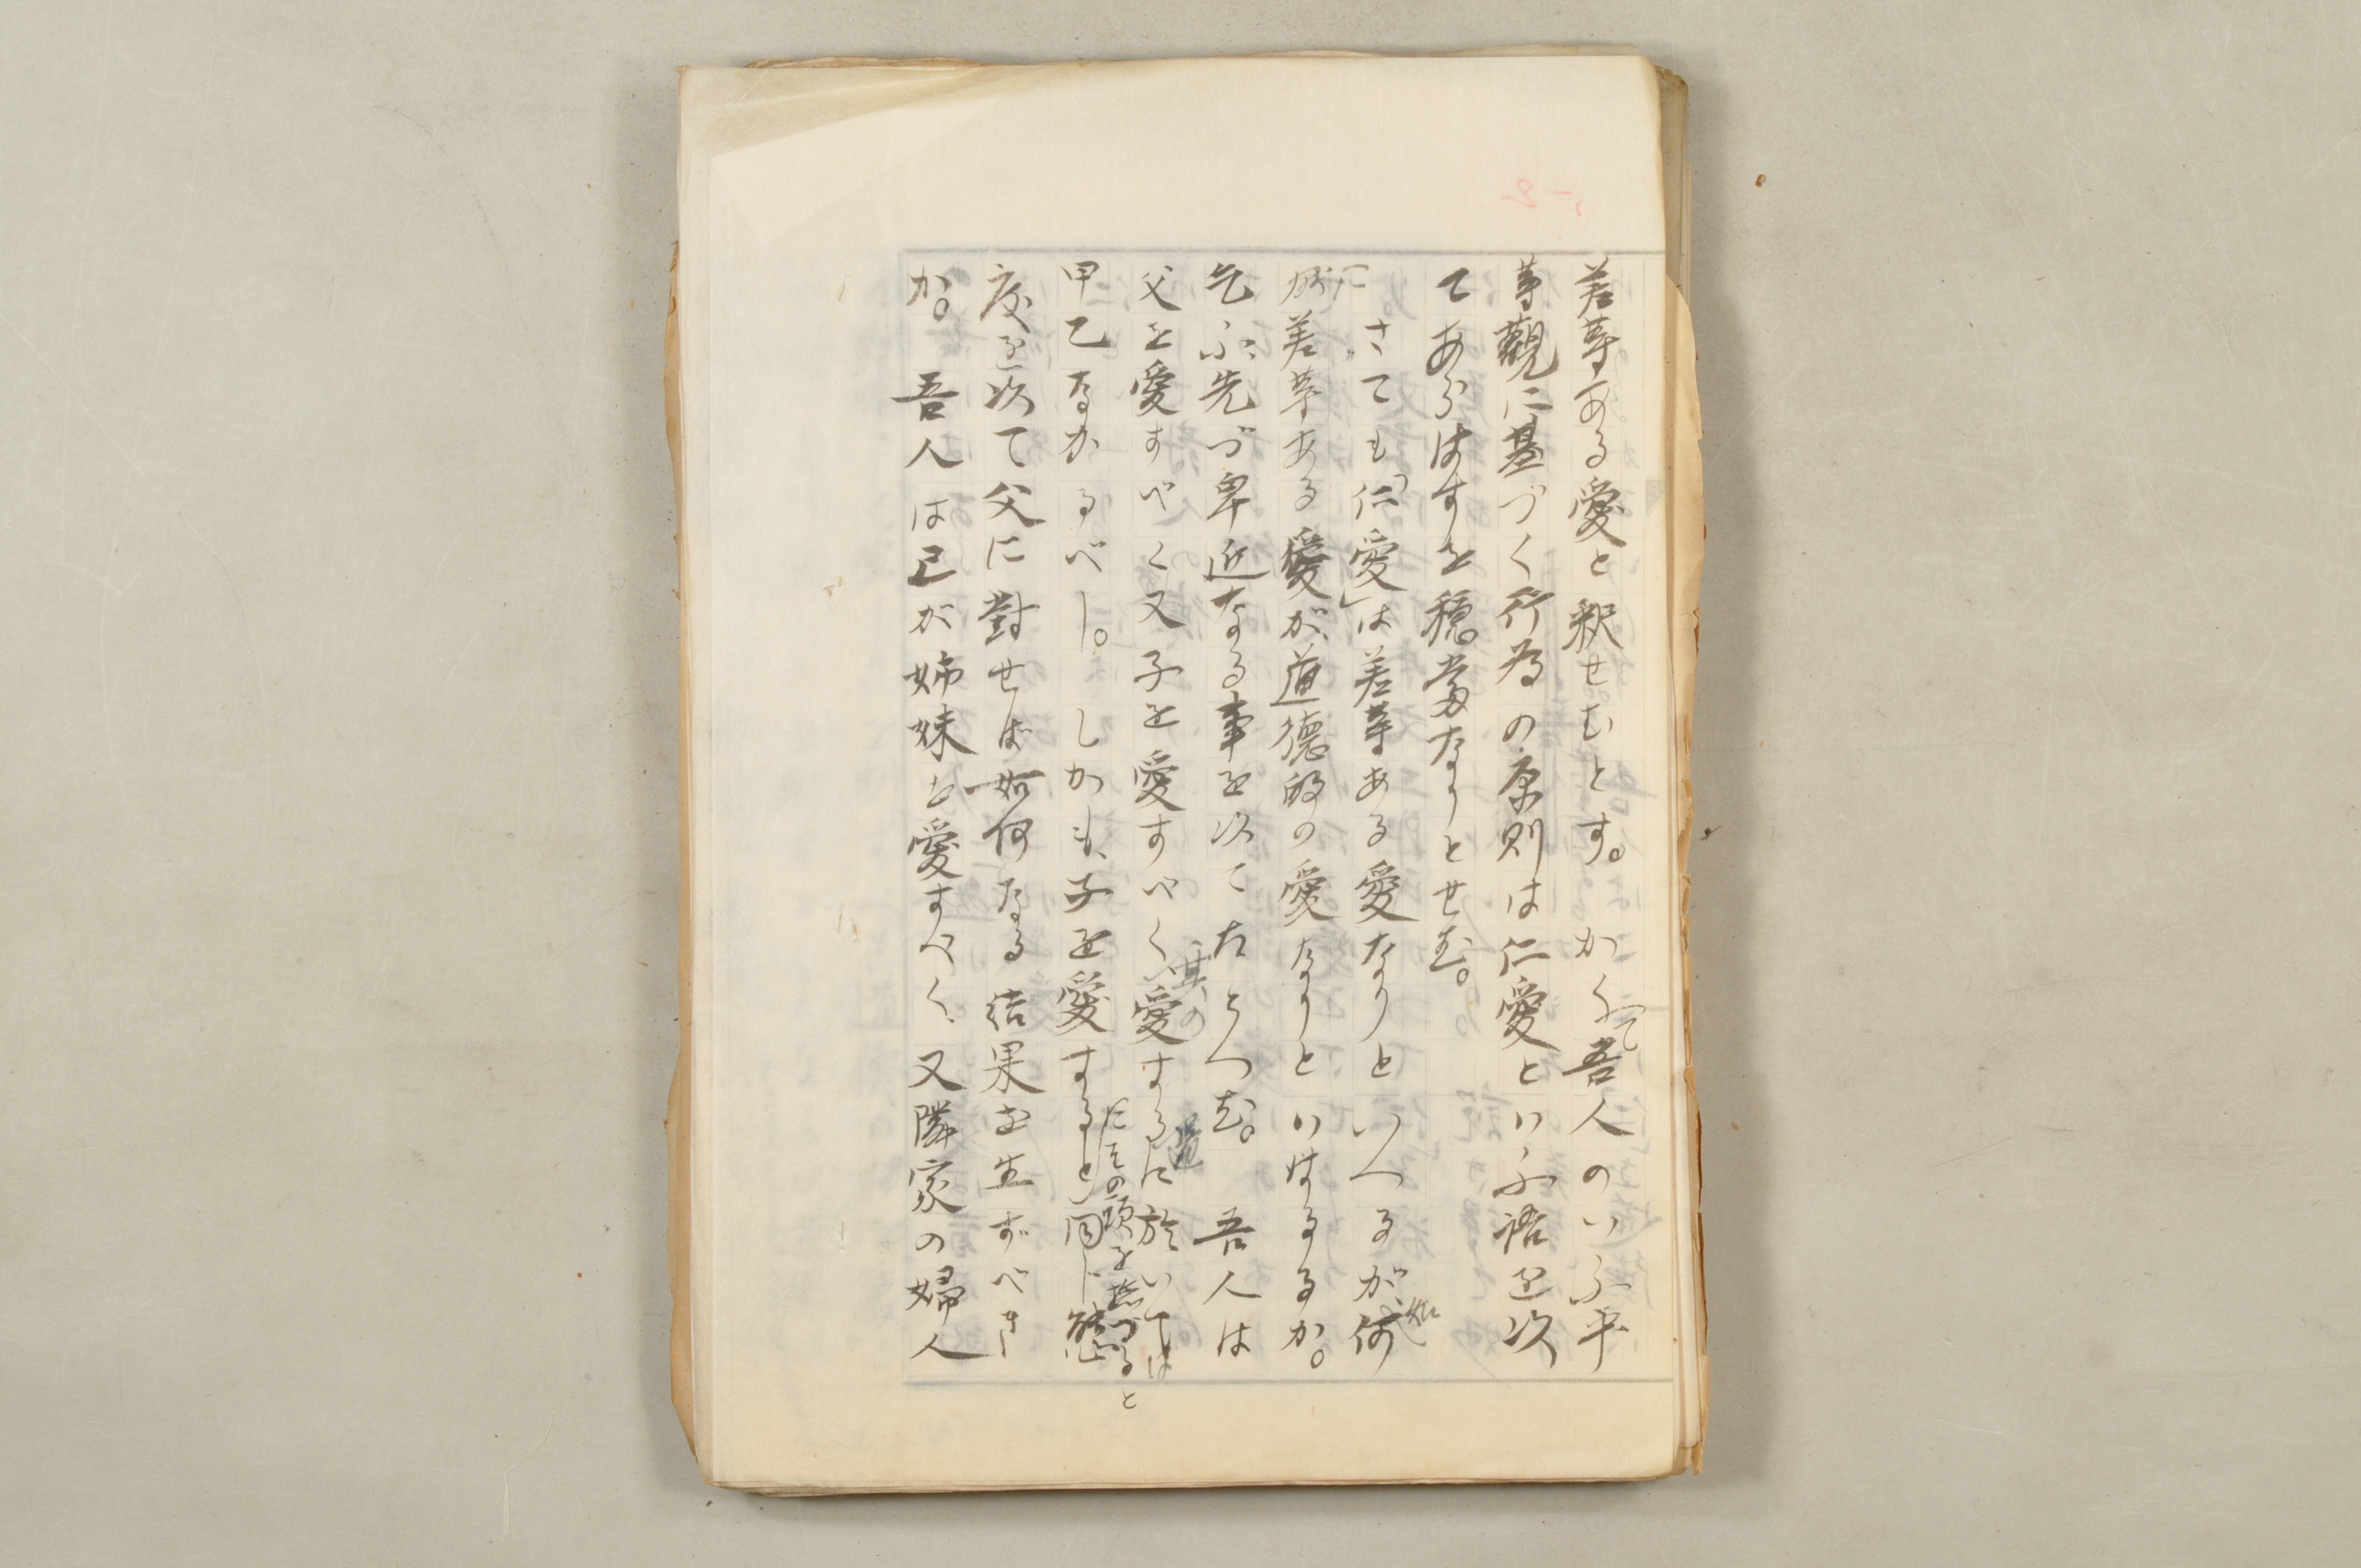 差等ある愛と釈せむとす。かくて吾人のいふ平
等觀に基づく行為の原則は仁愛といふ語を以
てあらはすを穏當なりとせむ。
さても「仁愛」は差等ある愛なりといへるが、如何
に差等ある愛が、道德的の愛なりといはるるか。
乞ふ、先づ卑近なる事を以てたとへむ。吾人は
父を愛すべく又子を愛すべく、其の愛するに於いては
甲乙なかるべし。しかも、子を愛するに其の頭を撫づると同じ態
度を以て父に對せば如何なる結果を生ずべき
か。吾人は己が姉妹を愛すべく、又隣家の婦人